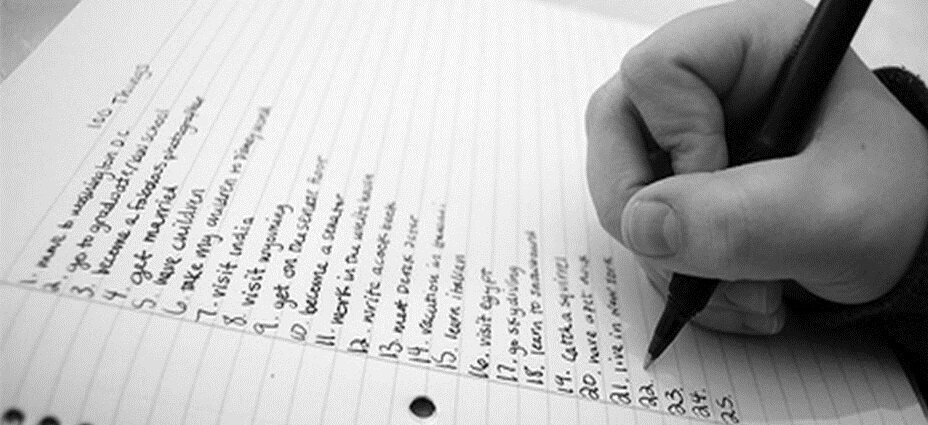 100 Things
1. move to washington D.C
2. go to graduate/law school
3. become a fabulous photographer
4. get married
5. have children
6. take my children to Disney world
7. visit India
8. visit wyoming
9. get on the senate floor
10. become a senator
11. work in the white house
12. write a cook book
13. meet Derek Jeter
14. vacation in
15. learn italian
16. visit Egypt
17. go skydiving
18. learn to
19. catch a squirrel
20. have a pet
21. live in new york
22.
23.
24.
25.